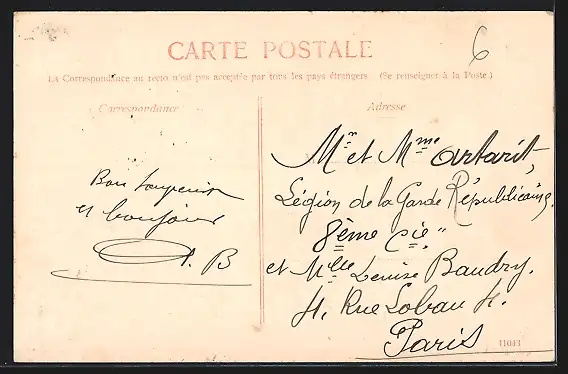 6
CARTE POSTALE
La Correspondance au recto n'est pas acceptée par tous les pays étrangers. (Se renseigner à la Poste.)
Correspondance
Adresse
Bon Souvenir
et bonjour
B
Mr et Mme Artarit,
Légion de la Garde Républicaine.
8ème Cie "
et Mlle Denise Baudry.
4, Rue Lobau 4.
Paris
11043